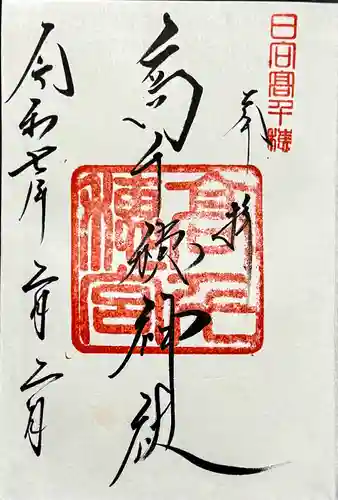 日向高千穂
奉拝
高千穂神社
高千
穂宮
令和七年二月二日